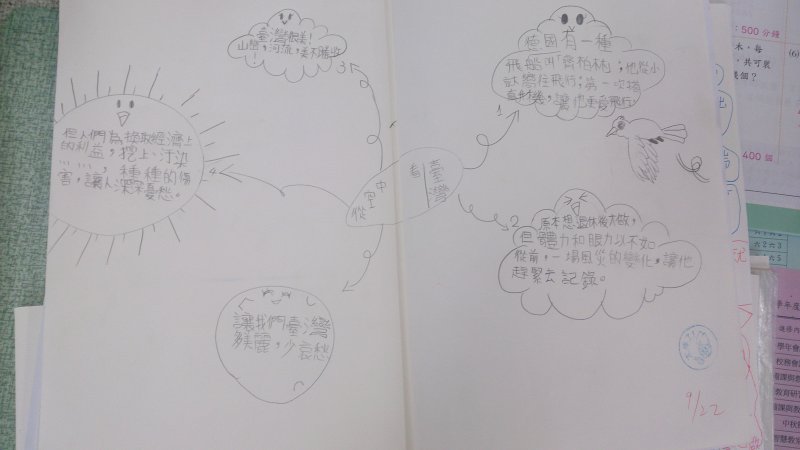 從空中
看臺灣
1
德國有一種
飛船叫「齊柏林」;他從小
就嚮往飛行;第一次搭
直升機,讓他更愛飛行。
2
原本想退休後才做,
但體力和眼力以不如
從前,一場風災的變化,讓他
趕緊去記錄。
3
臺灣很美!
山巒,河流,美不勝收
!
4
但人們為挣取經濟上
的利益,挖土、汙染
……,種種的傷
害,讓人深深憂愁。
讓我們臺灣
多美麗,少哀愁
9/22
:500分鐘
木,每
,共可裝
幾個?
(6)
400 個
六2
六2六3
六4六5
學年度
學年會
校務會
教育研
中秋
智慧教室